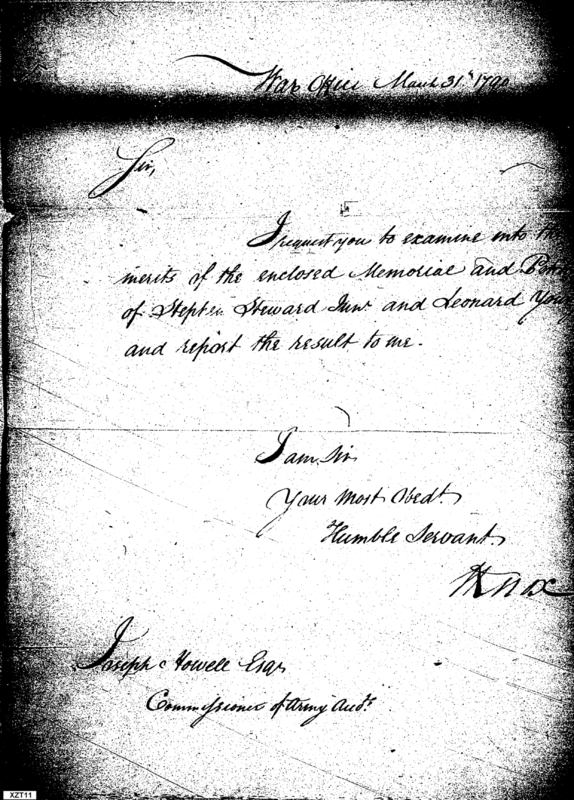 War Office March 31st 1790
Sir,
I request you to examine into the
merits of the enclosed Memorial and
of Stephen Steward Junr and Leonard
and report the result to me.
I am, Sir
Your Most Obedt.
Humble Servant.
HKnox
Joseph Howell Esqr
Commissioner of Army Accts.
XZT11